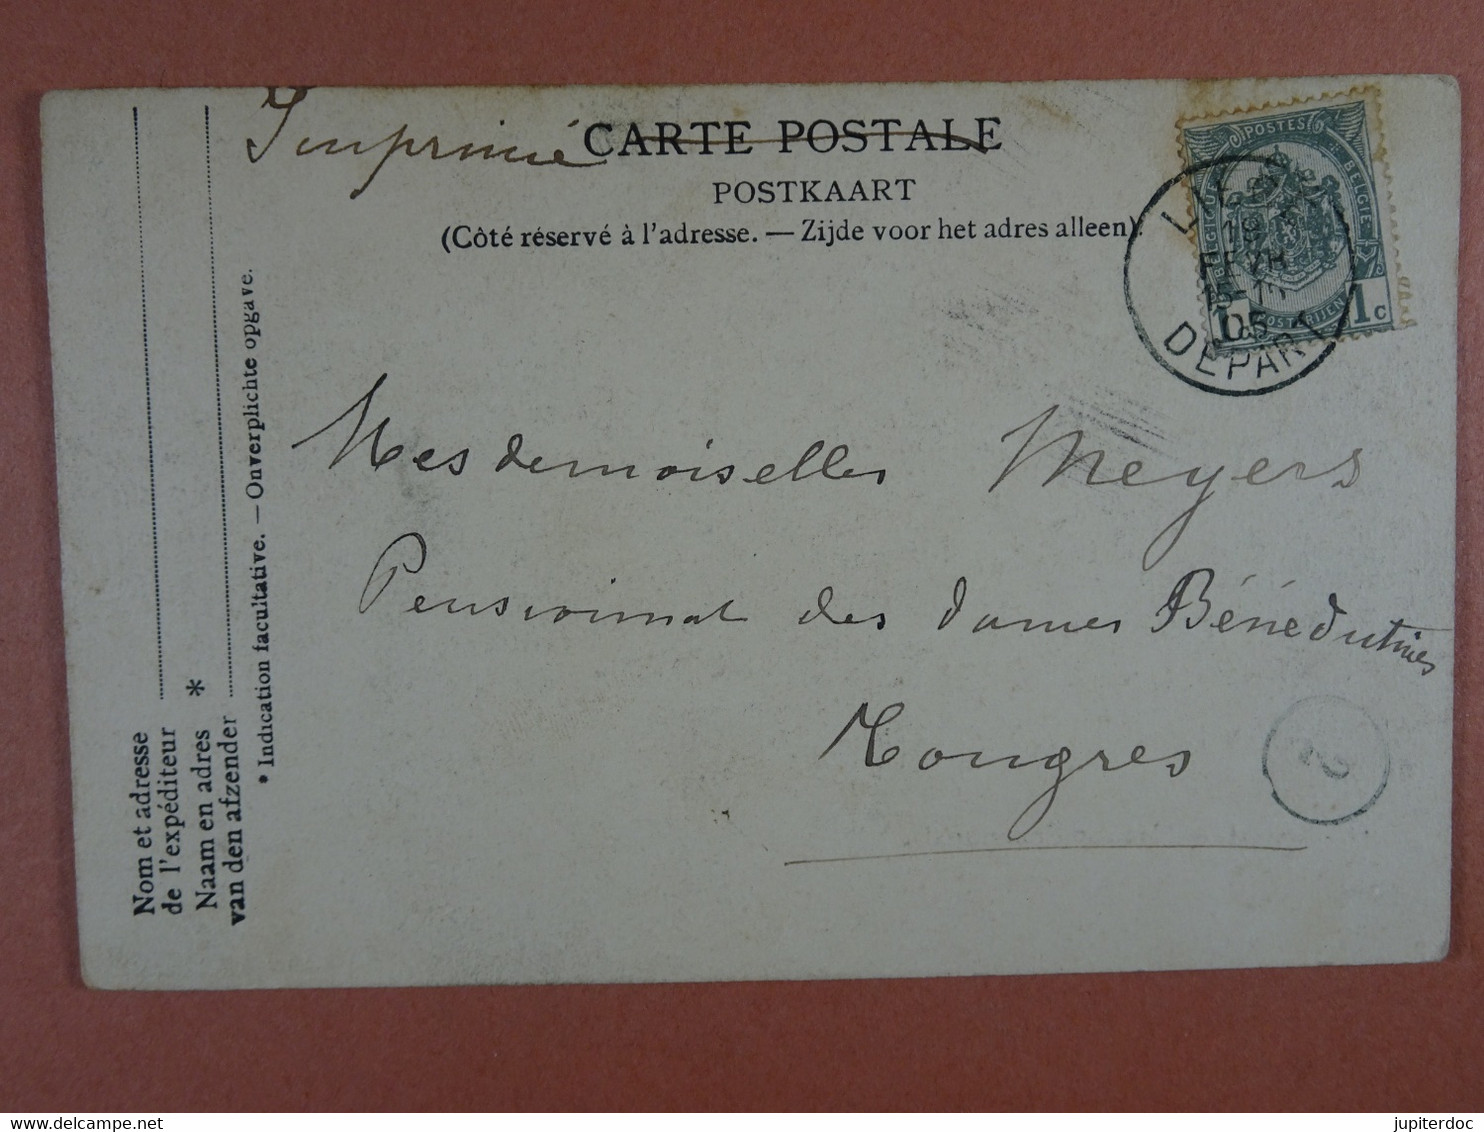 Imprimé
CARTE POSTALE
POSTKAART
(Côté réservé à l'adresse. — Zijde voor het adres alleen).
POSTES
BELGIE
1c
FEVR
05
DEPART
Mesdemoiselles Meyers
Pensionnat des dames Bénédictines
Tongres
2
Nom et adresse
de l'expéditeur
Naam en adres
van den afzender
*
* Indication facultative. — Onverplichte opgave.
jupiterdoc